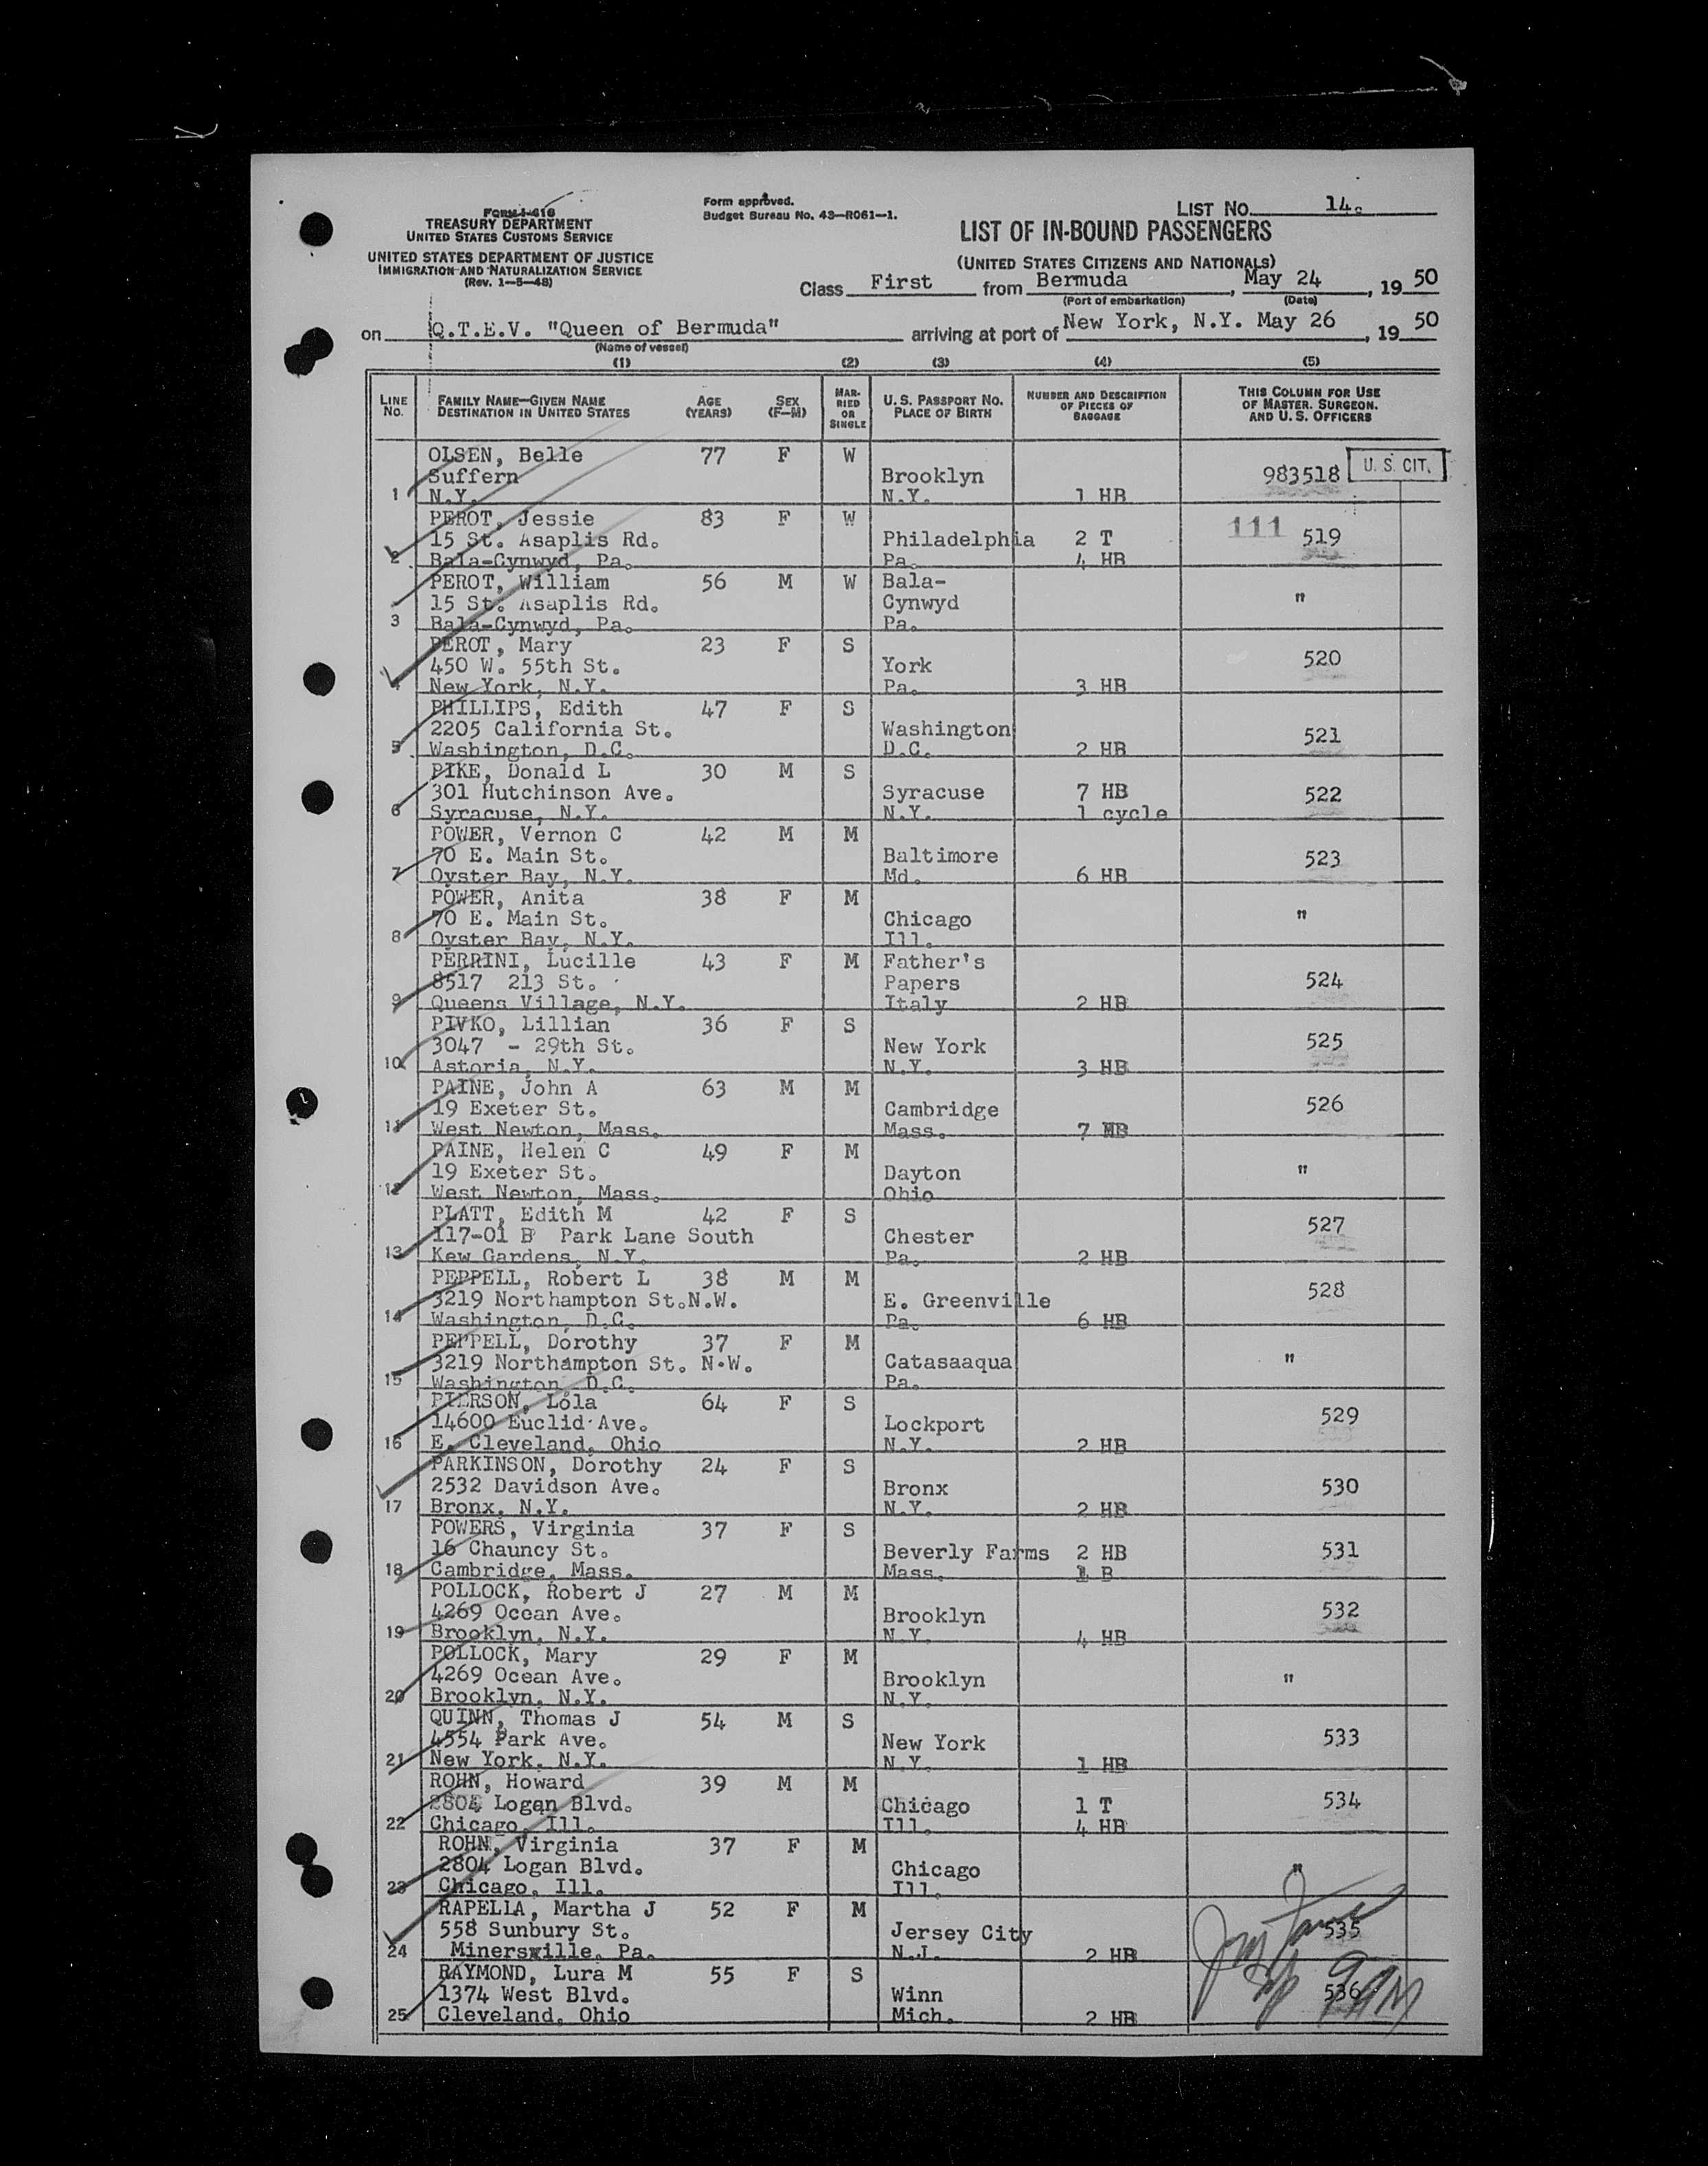 Form I-418
TREASURY DEPARTMENT
UNITED STATES CUSTOMS SERVICE
UNITED STATES DEPARTMENT OF JUSTICE
IMMIGRATION AND NATURALIZATION SERVICE
(Rev. 1-5-48)
Form approved.
Budget Bureau No. 43-R061-1.
LIST NO. 14.
LIST OF IN-BOUND PASSENGERS
(UNITED STATES CITIZENS AND NATIONALS)
Class First from Bermuda, May 24, 1950
(Port of embarkation) (Date)
on Q.T.E.V. "Queen of Bermuda" arriving at port of New York, N.Y. May 26, 1950
(Name of vessel)
(1) (2) (3) (4) (5)
LINE NO. FAMILY NAME—GIVEN NAME DESTINATION IN UNITED STATES AGE (YEARS) SEX (F—M) MARRIED OR SINGLE U.S. PASSPORT NO. PLACE OF BIRTH NUMBER AND DESCRIPTION OF PIECES OF BAGGAGE THIS COLUMN FOR USE OF MASTER, SURGEON, AND U.S. OFFICERS
OLSEN, Belle 77 F W
Suffern Brooklyn 983518 U.S. CIT.
1 N.Y. N.Y. 1 HB
PEROT, Jessie 83 F W 111
15 St. Asaplis Rd. Philadelphia 2 T 519
2 Bala-Cynwyd, Pa. Pa. 4 HB
PEROT, William 56 M W Bala-
15 St. Asaplis Rd. Cynwyd "
3 Bala-Cynwyd, Pa. Pa.
PEROT, Mary 23 F S
450 W. 55th St. York 520
4 New York, N.Y. Pa. 3 HB
PHILLIPS, Edith 47 F S
2205 California St. Washington 521
5 Washington, D.C. D.C. 2 HB
PIKE, Donald L 30 M S
301 Hutchinson Ave. Syracuse 7 HB 522
6 Syracuse, N.Y. N.Y. 1 cycle
POWER, Vernon C 42 M M
70 E. Main St. Baltimore 523
7 Oyster Bay, N.Y. Md. 6 HB
POWER, Anita 38 F M
70 E. Main St. Chicago "
8 Oyster Bay, N.Y. Ill.
PERRINI, Lucille 43 F M Father's
8517 213 St. Papers 524
9 Queens Village, N.Y. Italy 2 HB
PIVKO, Lillian 36 F S
3047 - 29th St. New York 525
10 Astoria, N.Y. N.Y. 3 HB
PAINE, John A 63 M M
19 Exeter St. Cambridge 526
11 West Newton, Mass. Mass. 7 HB
PAINE, Helen C 49 F M
19 Exeter St. Dayton "
12 West Newton, Mass. Ohio
PLATT, Edith M 42 F S
117-01 B Park Lane South Chester 527
13 Kew Gardens, N.Y. Pa. 2 HB
PEPPELL, Robert L 38 M M
3219 Northampton St.N.W. E. Greenville 528
14 Washington, D.C. Pa. 6 HB
PEPPELL, Dorothy 37 F M
3219 Northampton St. N.W. Catasaaqua "
15 Washington, D.C. Pa.
PIERSON, Lola 64 F S
14600 Euclid Ave. Lockport 529
16 E. Cleveland, Ohio N.Y. 2 HB
PARKINSON, Dorothy 24 F S
2532 Davidson Ave. Bronx 530
17 Bronx, N.Y. N.Y. 2 HB
POWERS, Virginia 37 F S
16 Chauncy St. Beverly Farms 2 HB 531
18 Cambridge, Mass. Mass. 1 B
POLLOCK, Robert J 27 M M
4269 Ocean Ave. Brooklyn 532
19 Brooklyn, N.Y. N.Y. 4 HB
POLLOCK, Mary 29 F M
4269 Ocean Ave. Brooklyn "
20 Brooklyn, N.Y. N.Y.
QUINN, Thomas J 54 M S
4554 Park Ave. New York 533
21 New York, N.Y. N.Y. 1 HB
ROHN, Howard 39 M M
2804 Logan Blvd. Chicago 1 T 534
22 Chicago, Ill. Ill. 4 HB
ROHN, Virginia 37 F M
2804 Logan Blvd. Chicago "
23 Chicago, Ill. Ill.
RAPELLA, Martha J 52 F M
558 Sunbury St. Jersey City 535
24 Minersville, Pa. N.J. 2 HB
RAYMOND, Lura M 55 F S
1374 West Blvd. Winn 536
25 Cleveland, Ohio Mich. 2 HB